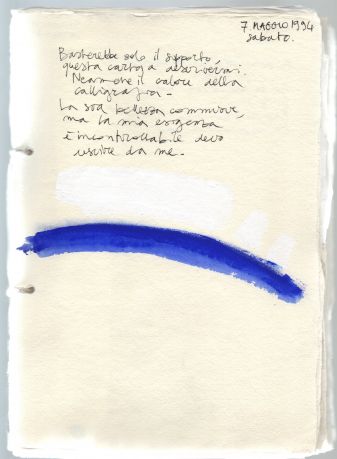 7 MAGGIO 1994
sabato.
Basterebbe solo il supporto,
questa carta a assorbirmi.
Neanche il calore della
calligrafia -
La sua bellezza commuove,
ma la mia esigenza
è incontrollabile devo
uscire da me -